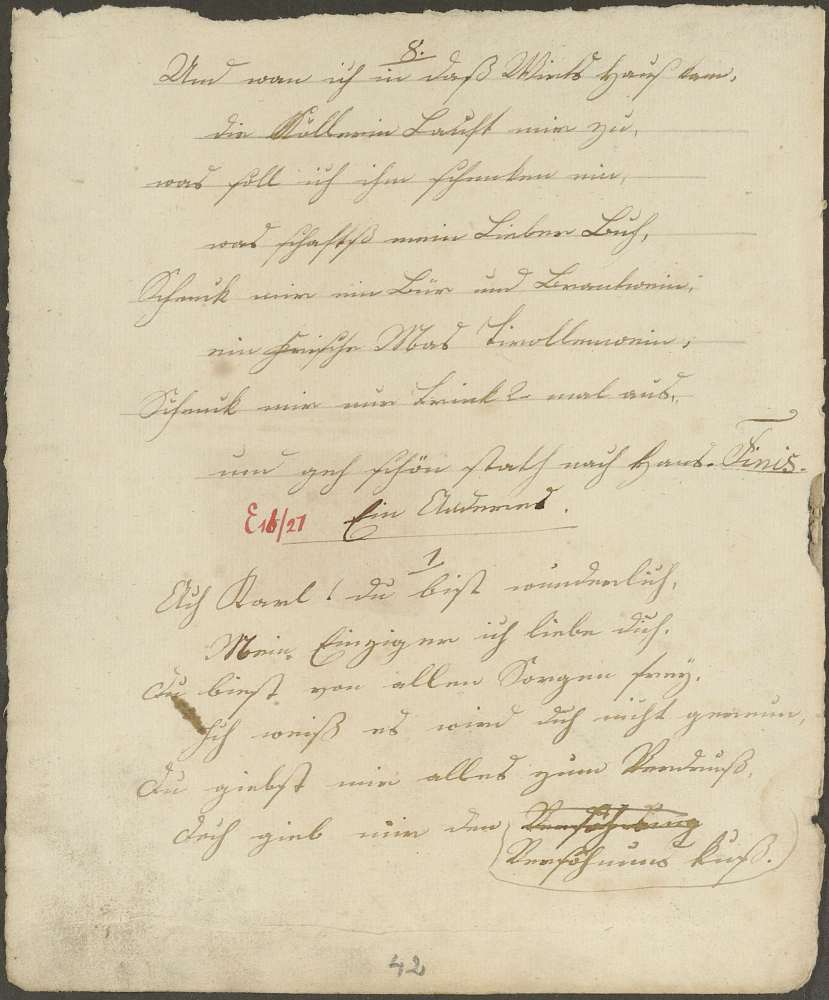 8.
Und wan ich in daß Wirts Hauß kam,
die Köllerin Lauft mir zu,
was soll ich ihm schenken ein,
was schafts mein Lieber Bub,
Schenk mir ein Bür und Brantwein,
ein frische Mas Tirollerwein,
Schenk mir nur trink 2 mal aus,
und geh schön stath nach Haus. Finis.
E 16/27 Ein Anderes.
1
Ach Karl! du bist wunderlich,
Mein Einziger ich liebe dich.
du biest von allen Sorgen frey.
Ich weiß es wird dich nicht gereun,
du giebst mir alles zum Verdruß,
doch gieb mir den
Versöhnuns Kuß.
42